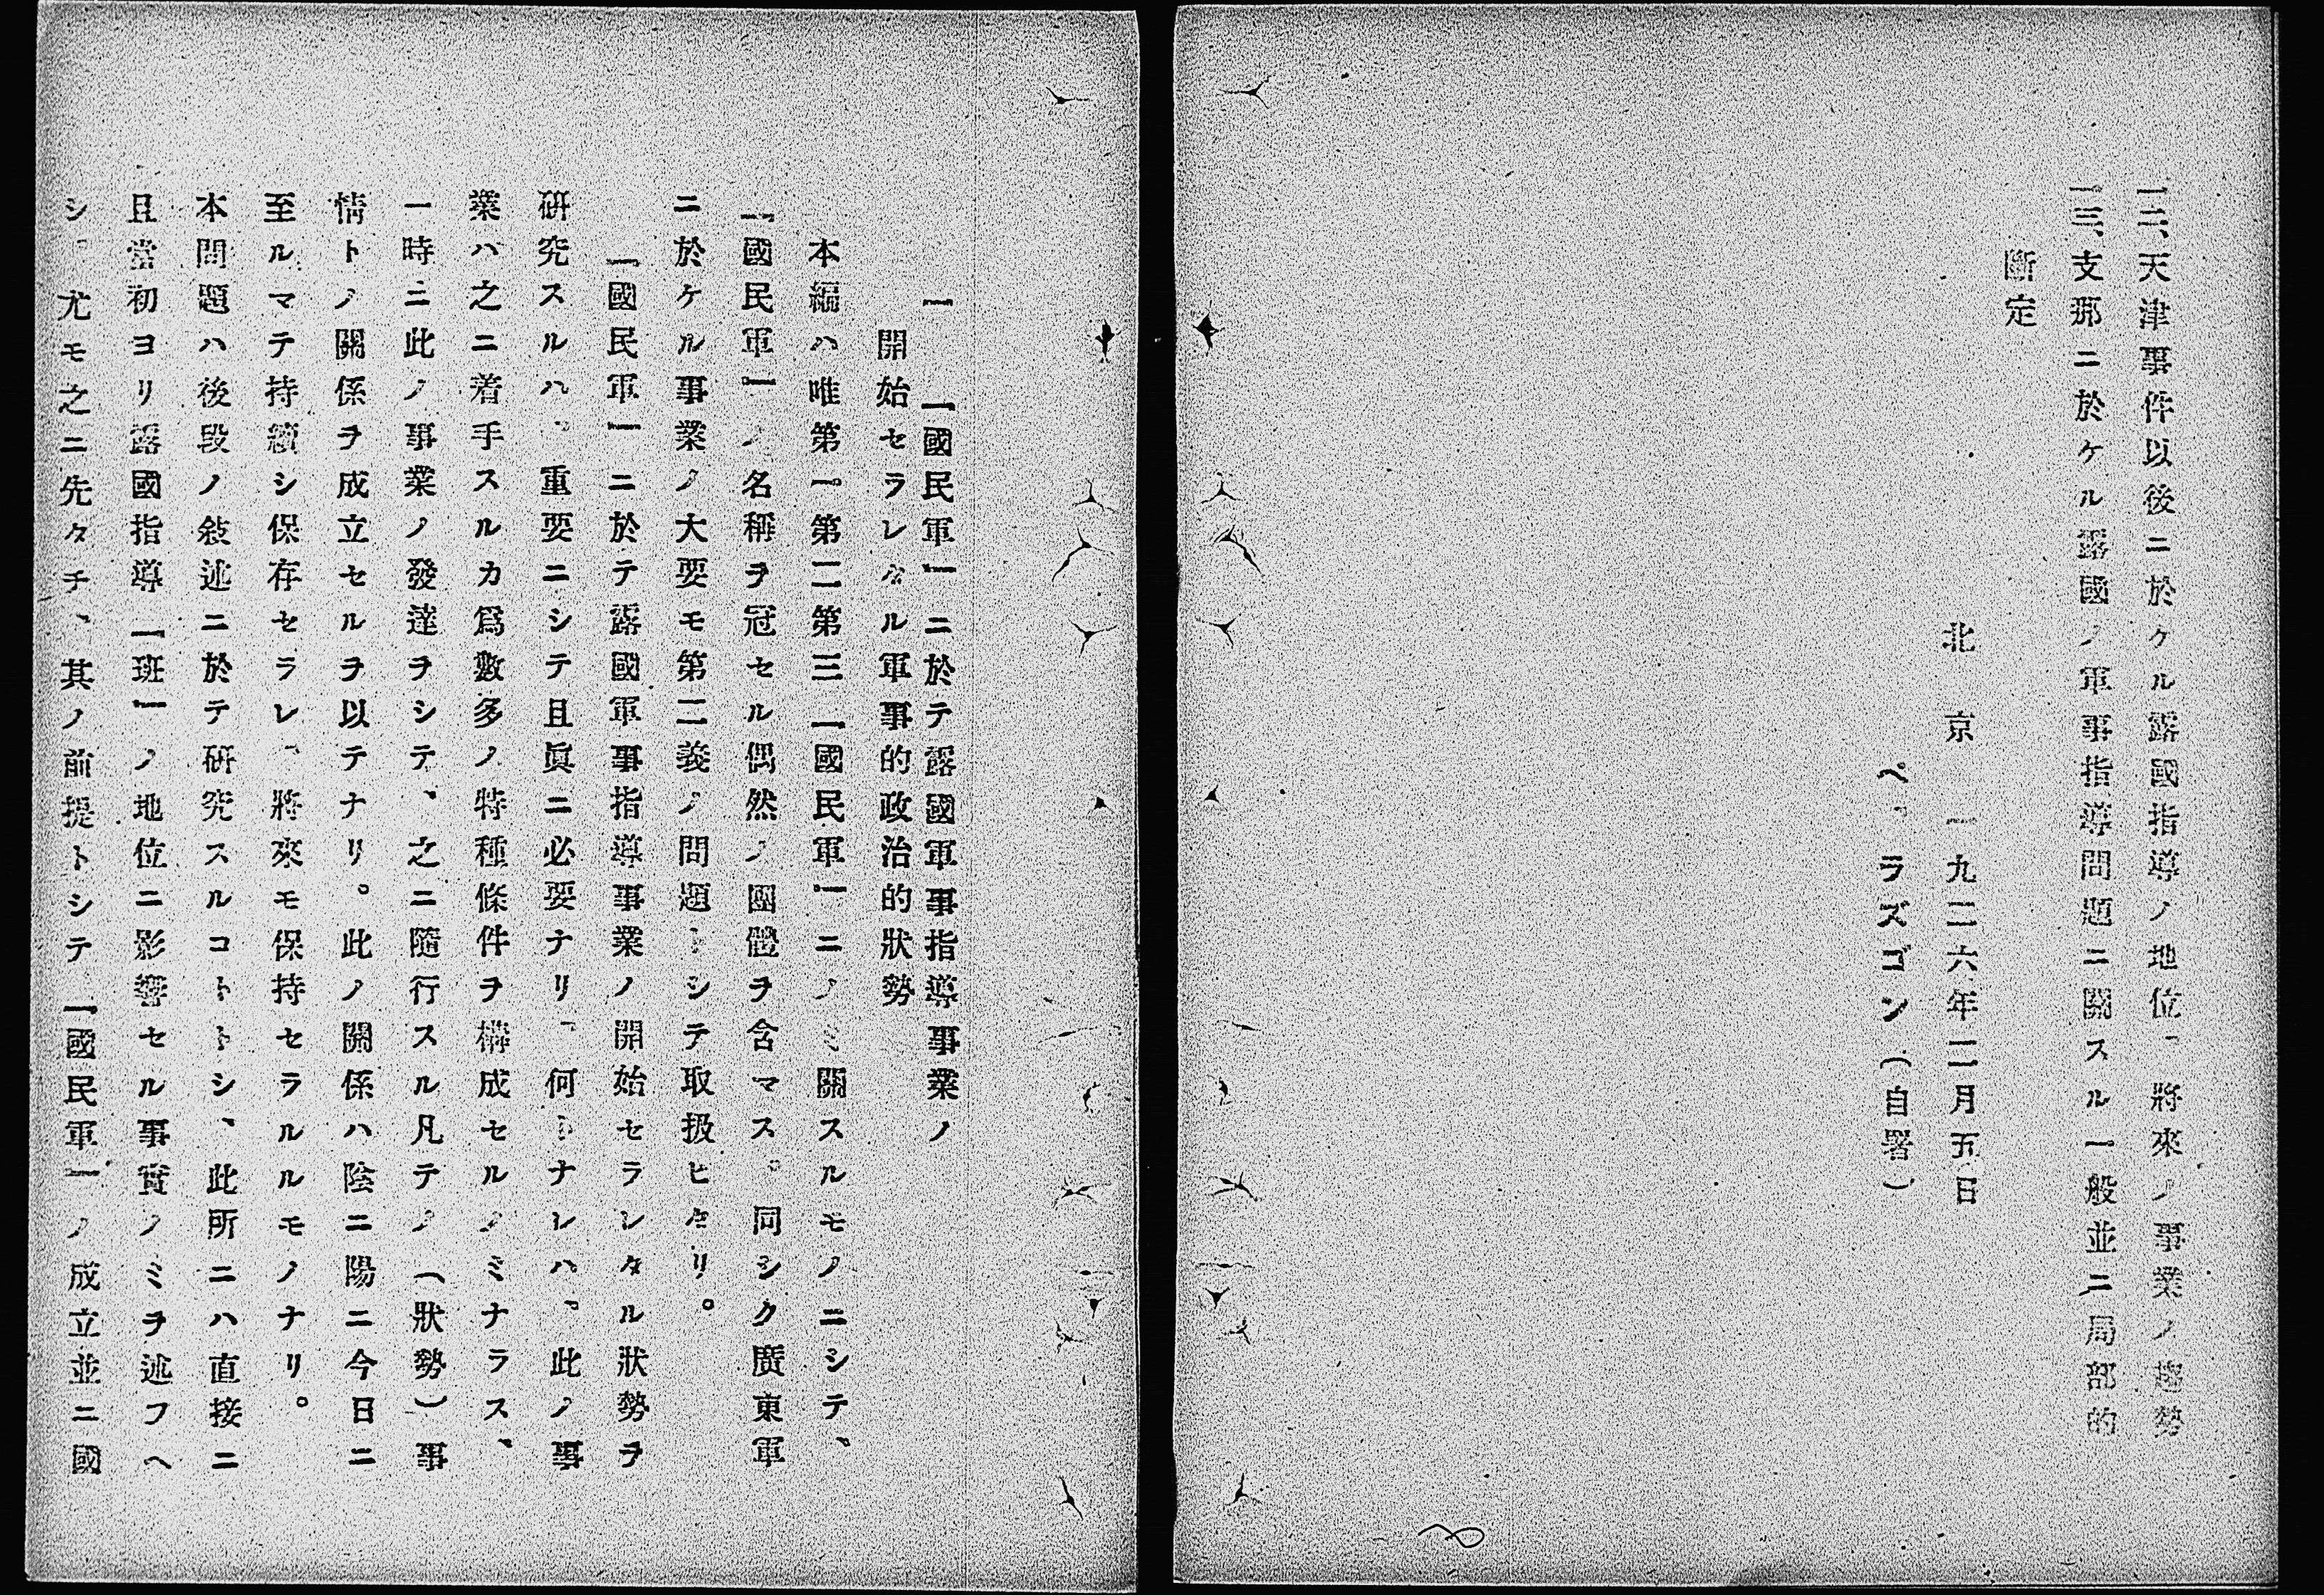 一二、天津事件以後ニ於ケル露國指導ノ地位、將來ノ事業ノ趨勢
一三、支那ニ於ケル露國ノ軍事指導問題ニ關スル一般並ニ局部的
斷定
北京 一九二六年二月五日
ペ、ラズゴン（自署）
一 「國民軍」ニ於テ露國軍事指導事業ノ
開始セラレタル軍事的政治的狀勢
本編ハ唯第一、第二第三「國民軍」ニノミ關スルモノニシテ、
「國民軍」ノ名稱ヲ冠セル偶然ノ團體ヲ含マス。同シク廣東軍
ニ於ケル事業ノ大要モ第二義ノ問題トシテ取扱ヒタリ。
「國民軍」ニ於テ露國軍事指導事業ノ開始セラレタル狀勢ヲ
研究スルハ、重要ニシテ且眞ニ必要ナリ、何トナレハ、此ノ事
業ハ之ニ着手スルカ爲數多ノ特種條件ヲ構成セルノミナラス、
一時ニ此ノ事業ノ發達ヲシテ、之ニ隨行スル凡テノ（狀勢）事
情トノ關係ヲ成立セルヲ以テナリ。此ノ關係ハ陰ニ陽ニ今日ニ
至ルマテ持續シ保存セラレ、將來モ保持セラルルモノナリ。
本問題ハ後段ノ敍述ニ於テ研究スルコトトシ、此所ニハ直接ニ
且當初ヨリ露國指導「班」ノ地位ニ影響セル事實ノミヲ述フヘ
シ、尤モ之ニ先タチ、其ノ前提トシテ「國民軍」ノ成立並ニ國